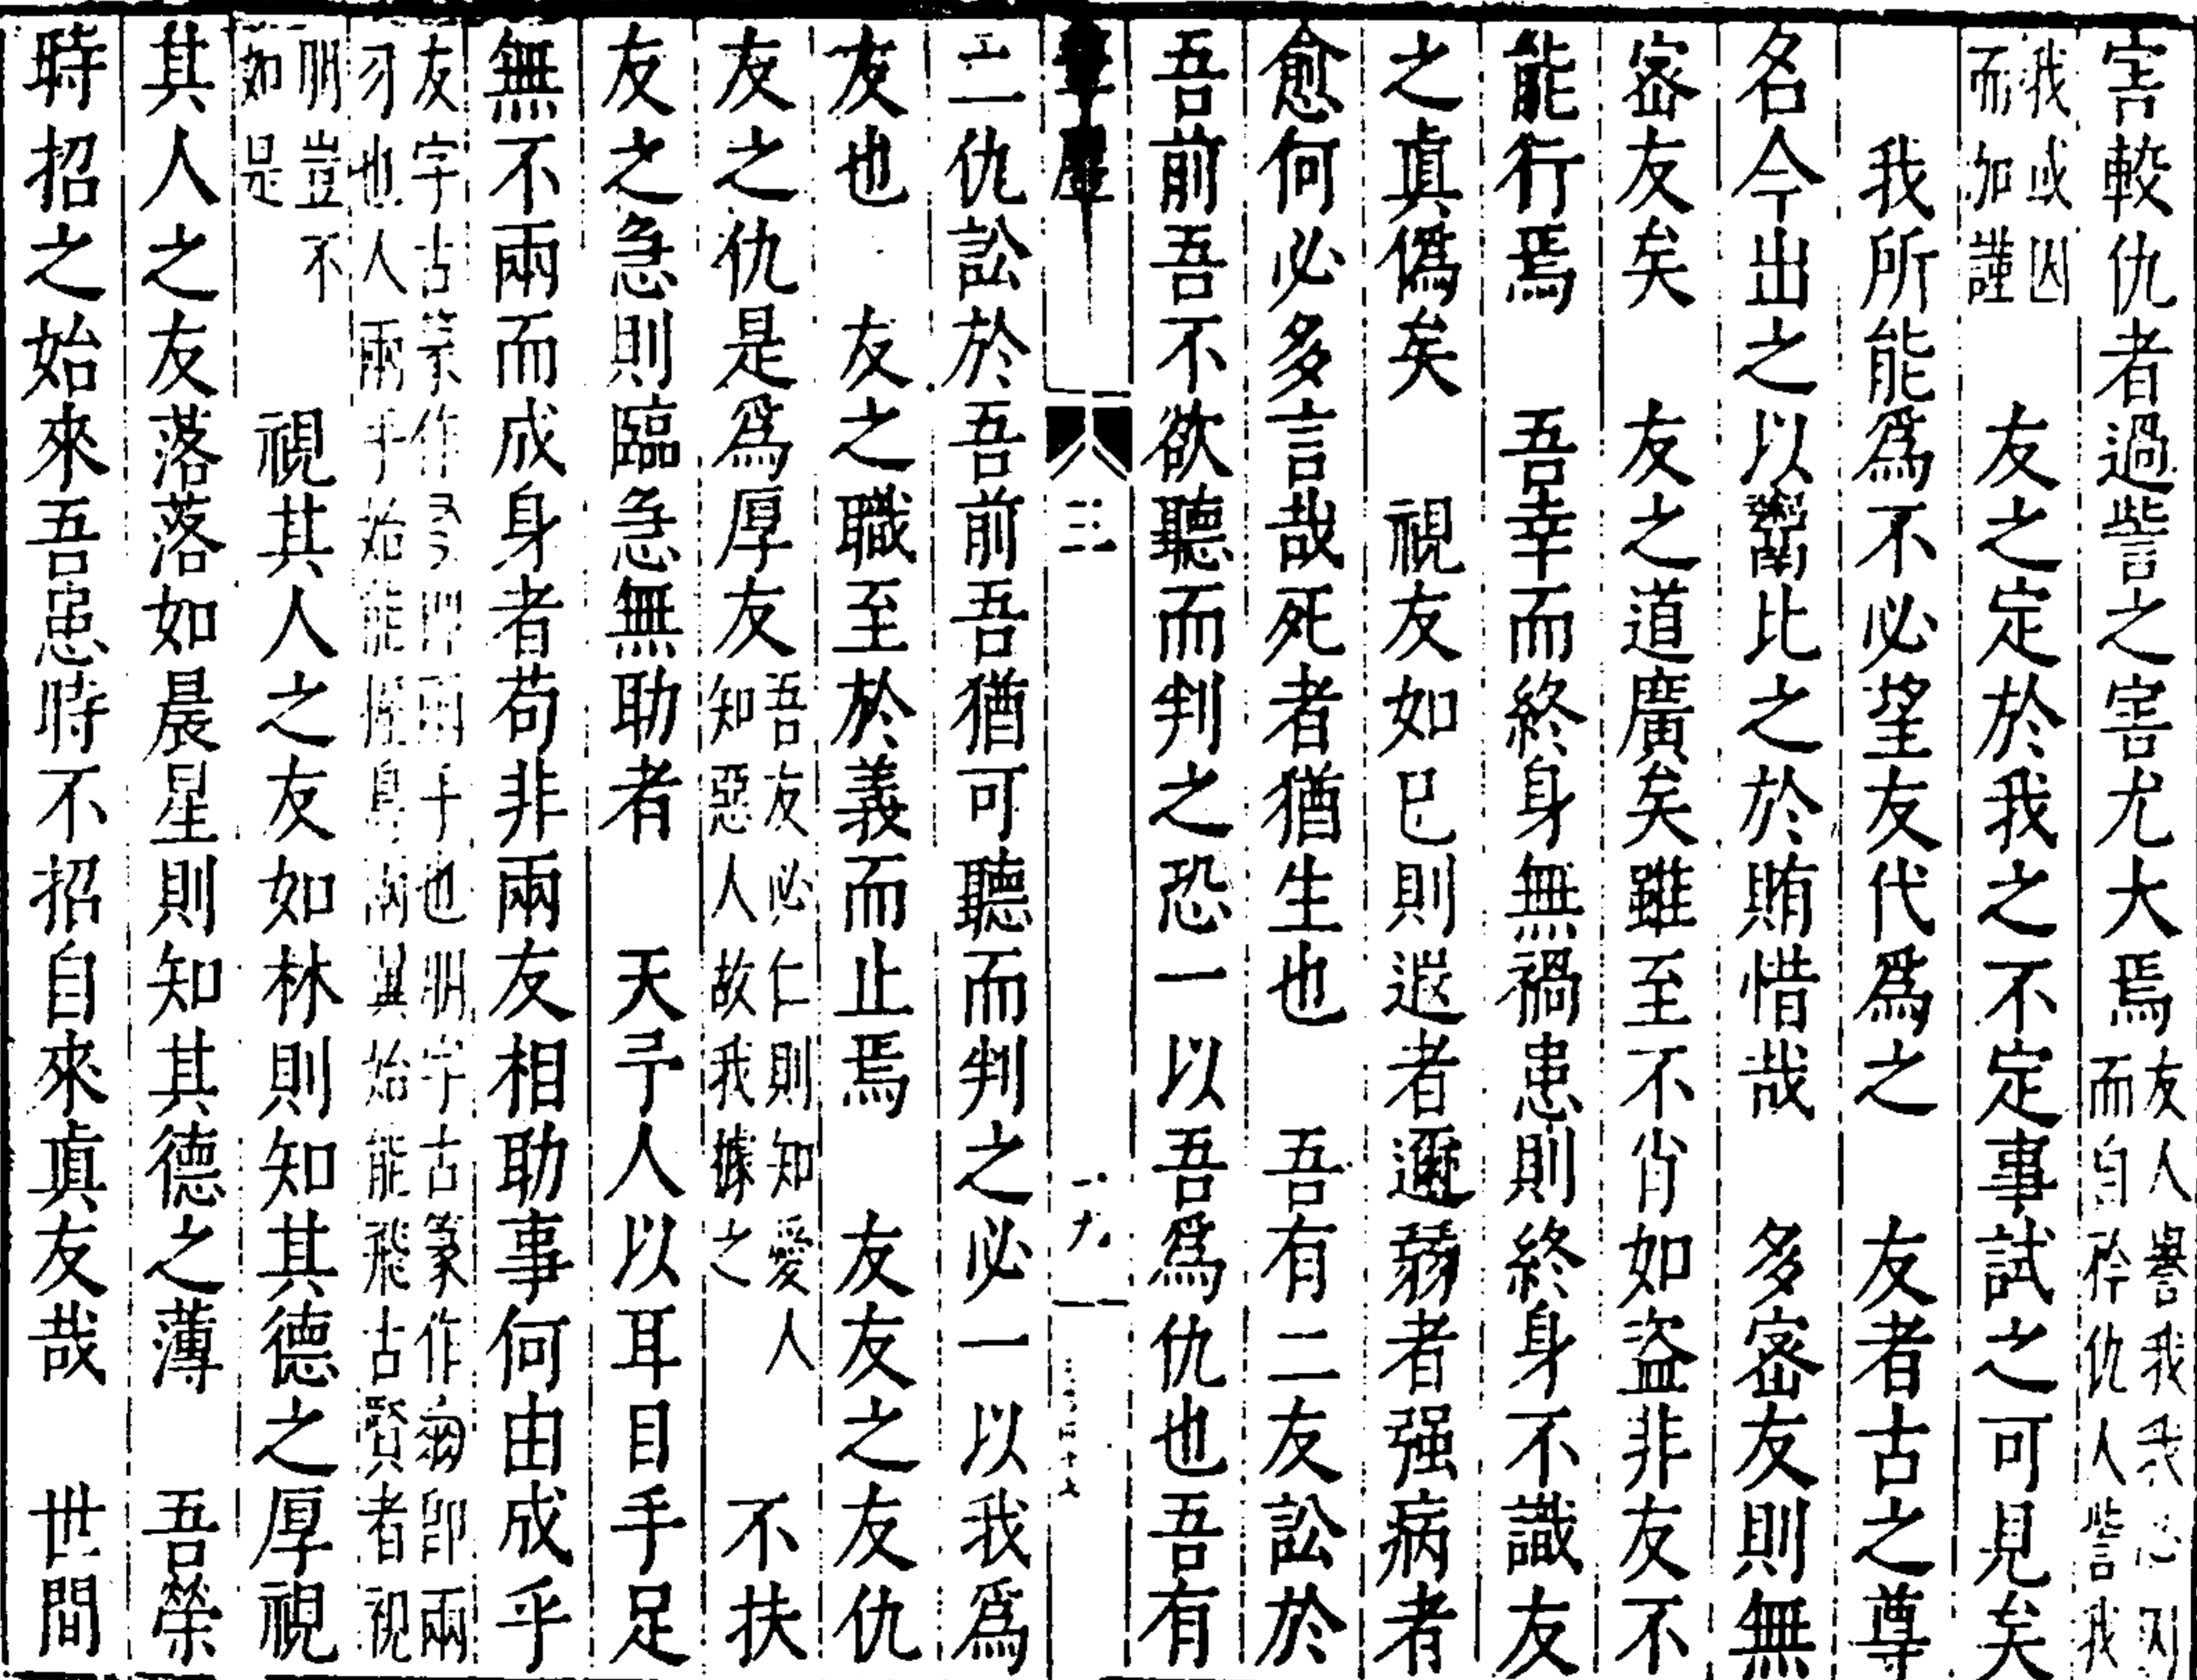 害較仇者過訾之害尤大焉友人譽我我或因而自矜仇人訾我
我或因而加謹　友之定於我之不定事試之可見矣
我所能為不必望友代為之　友者古之尊
名今出之以鬻比之於賄惜哉　多密友則無
密友矣　友之道廣矣雖至不肖如盜非友不
能行焉　吾幸而終身無禍患則終身不識友
之真偽矣　視友如已則遐者邇弱者强病者
愈何必多言哉死者猶生也　吾有二友訟於
吾前吾不欲聽而判之恐一以吾為仇也吾有
三　一九
二仇訟於吾前吾猶可聽而判之必一以我為
友也　友之職至於義而止焉　友友之友仇
友之仇是為厚友吾友必仁則知愛人知惡人故我據之　不扶
友之急則臨急無助者　天予人以耳目手足
無不兩而成身者苟非兩友相助事何由成乎
友字古篆作㕛即兩手也朋字古篆作羽即兩習也人兩手始能持鳥兩翼始能飛古賢者視
朋豈不如是　視其人之友如林則知其德之厚視
其人之友落落如晨星則知其德之薄　吾榮
時招之始來吾患時不招自來真友哉　世間